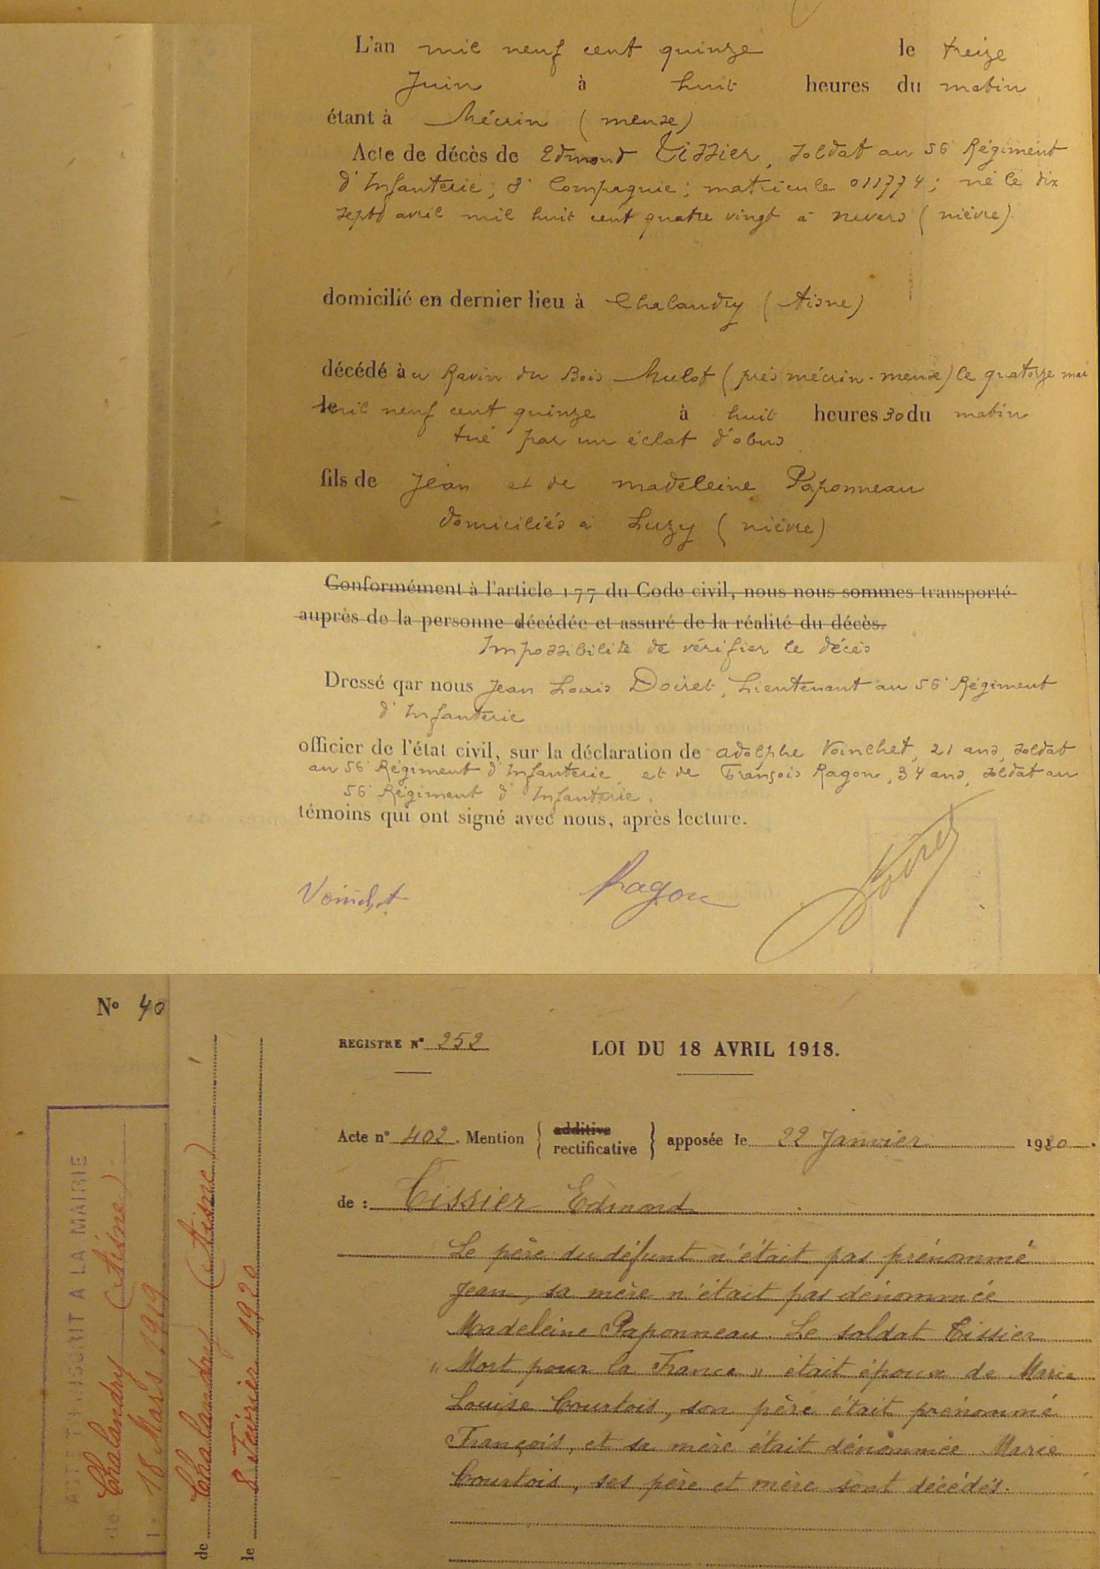 L'an mil neuf cent quinze le treize
Juin à huit heures du matin
étant à Mécrin (meuse)
Acte de décès de Edmond Tissier, soldat au 56e Régiment
d'Infanterie; 8e Compagnie; matricule 011774; né le dix
sept avril mil huit cent quatre vingt à nevers (nièvre)
domicilié en dernier lieu à Chalandry (Aisne)
décédé au Ravin du Bois Mulot (près mécrin-meuse) le quatorze mai
mil neuf cent quinze à huit heures 30 du matin
tué par un éclat d'obus
fils de Jean et de madeleine Paponneau
domiciliés à Luzy (nièvre)
Conformément à l'article 177 du Code civil, nous nous sommes transporté
auprès de la personne décédée et assuré de la réalité du décès.
Impossibilité de vérifier le décès
Dressé qar nous Jean Louis Doiret, Lieutenant au 56e Régiment
d'Infanterie
officier de l'état civil, sur la déclaration de adolphe Voinchet, 21 ans, soldat
au 56e Régiment d'Infanterie, et de François Ragon, 34 ans, soldat au
56e Régiment d'Infanterie.
témoins qui ont signé avec nous, après lecture.
Voinchet Ragon Doiret
N° 40
REGISTRE N° 252
LOI DU 18 AVRIL 1918.
Acte n° 402. Mention { additive rectificative } apposée le 22 Janvier 1920.
de : Tissier Edmond
Le père du défunt n'était pas prénommé
Jean, sa mère n'était pas dénommée
Madeleine Paponneau. Le soldat Tissier
"Mort pour la France" était époux de Marie
Louise Courtois, son père était prénommé
François, et sa mère était dénommée Marie
Courtois, ses père et mère sont décédés.
ACTE TRANSCRIT A LA MAIRIE
de Chalandry (Aisne)
le 18 Mars 1919
de Chalandry (Aisne)
le 8 Février 1920